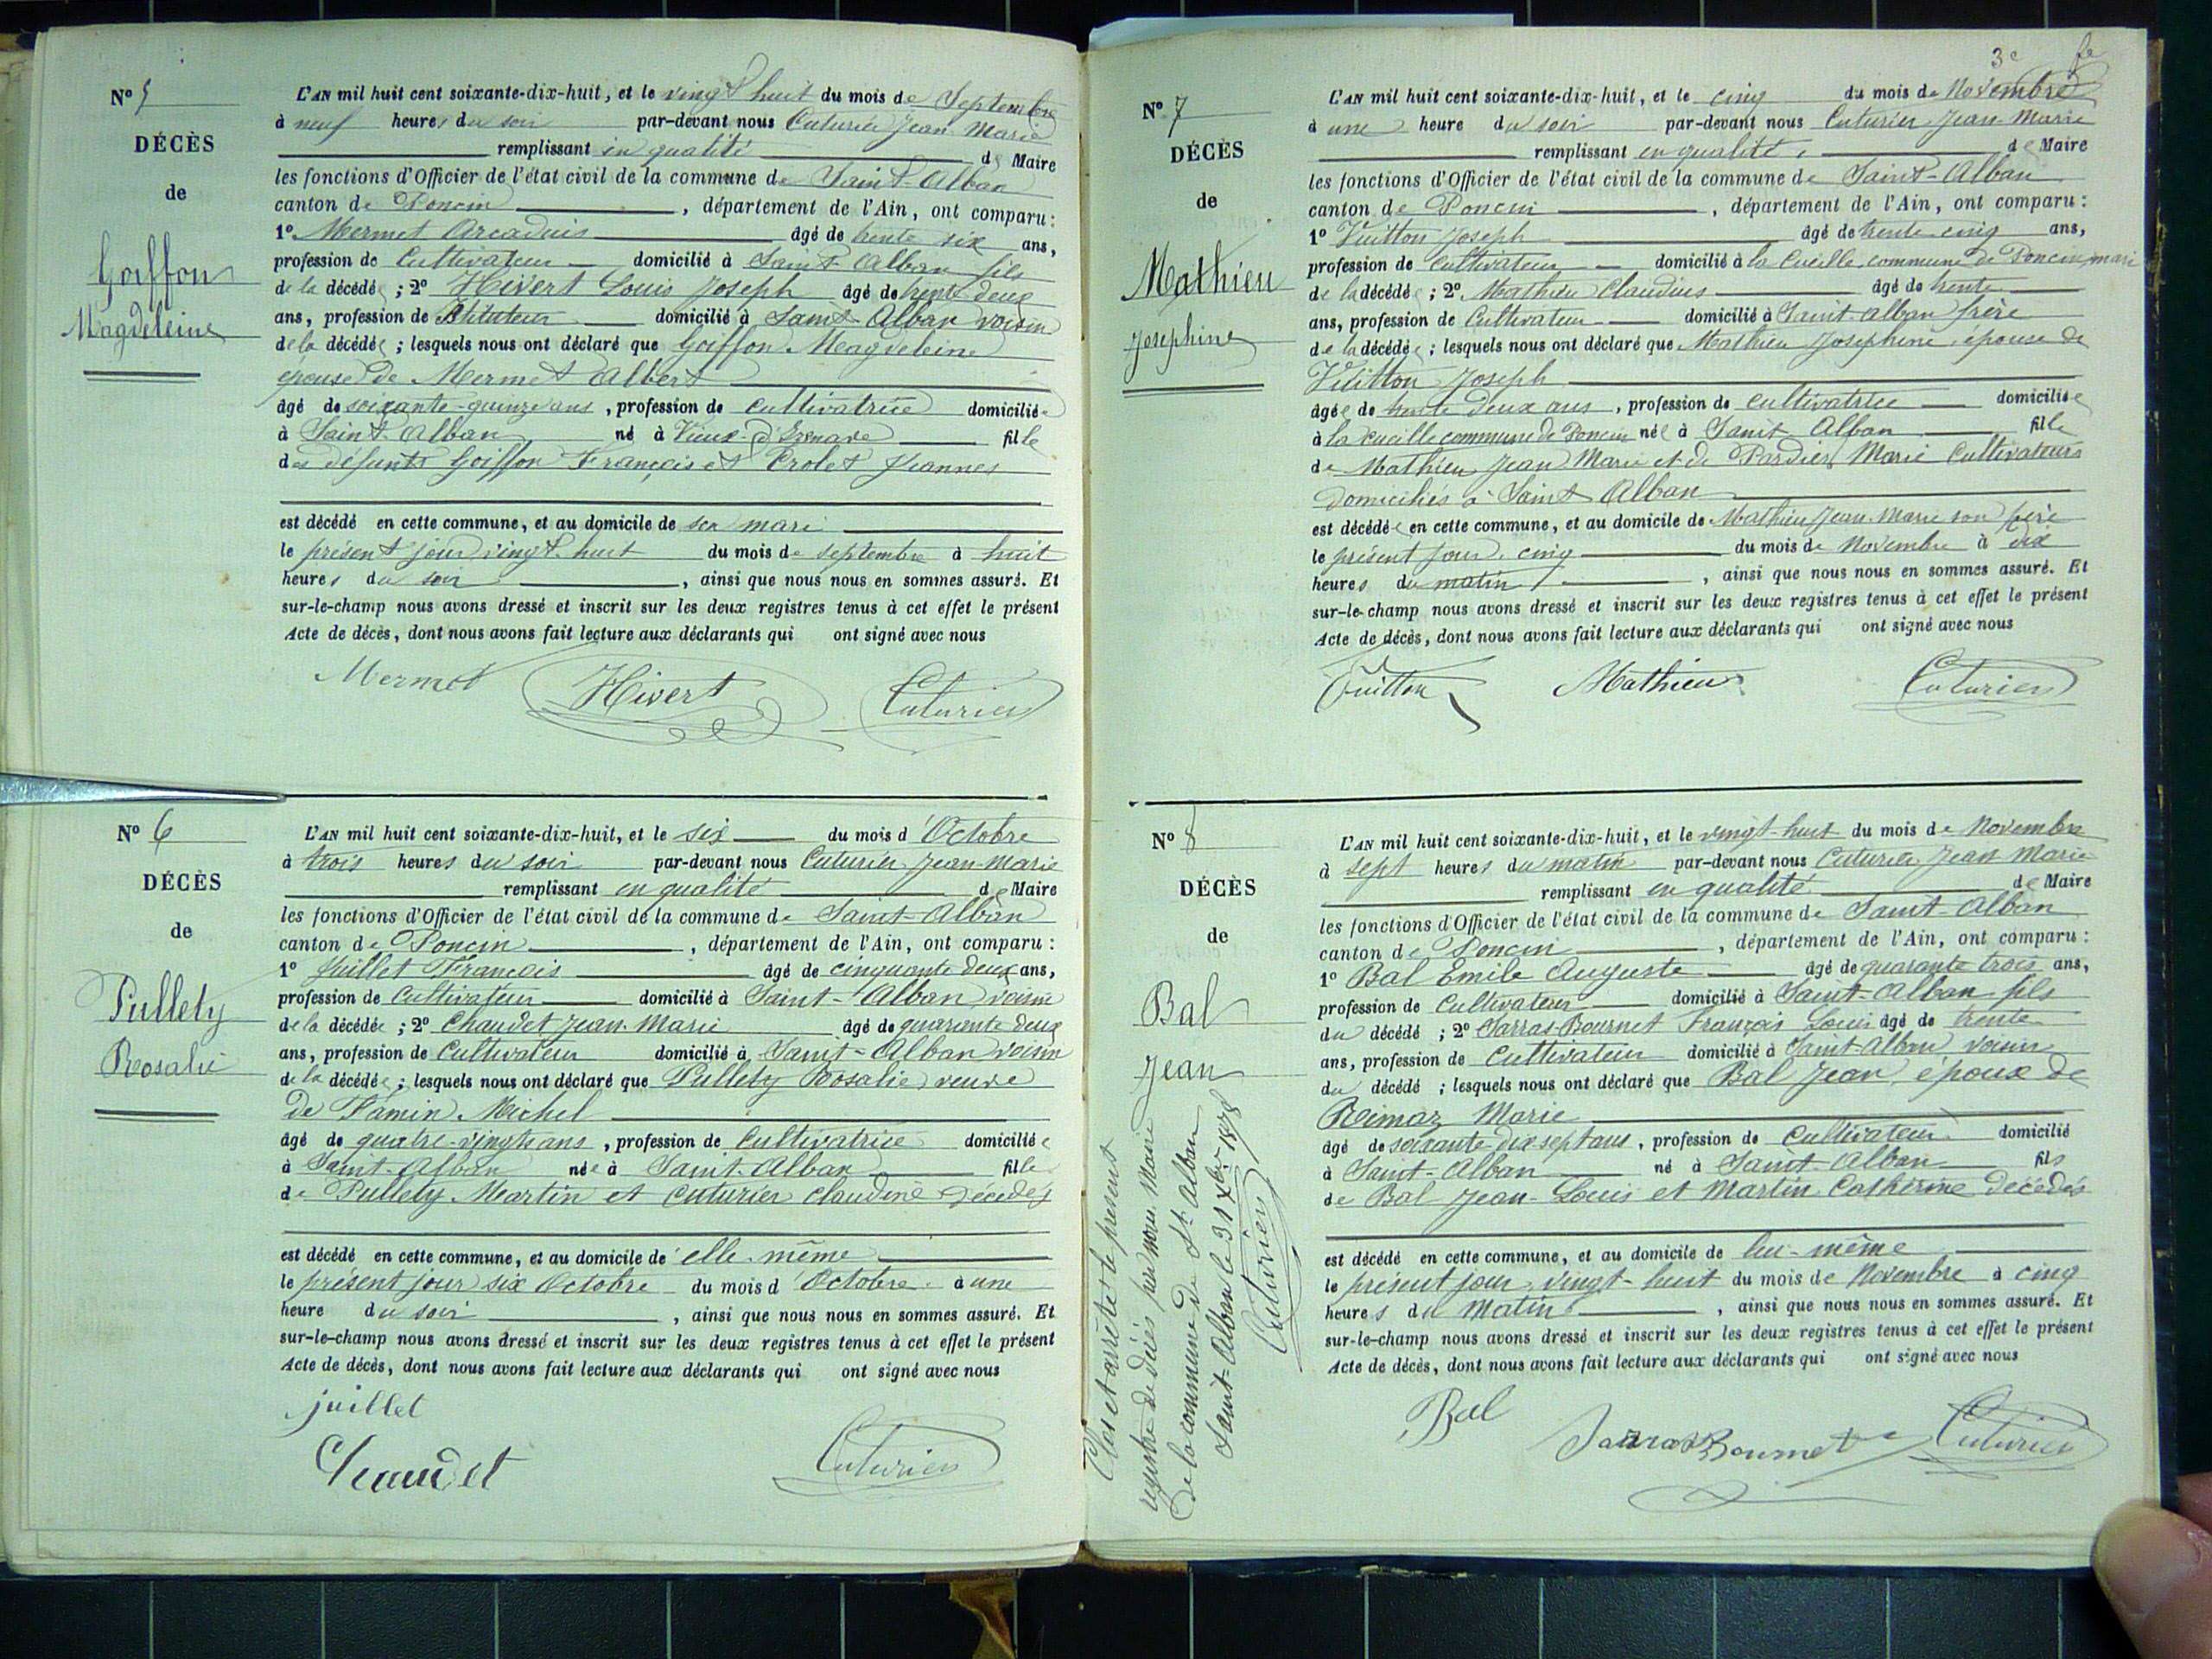 N° 5
DÉCÈS
de
Goiffon
Magdeleine
L'AN mil huit cent soixante-dix-huit, et le vingt huit du mois de Septembre
à neuf heures du soir par-devant nous Cuturier Jean Marie
remplissant en qualité de Maire
les fonctions d'Officier de l'état civil de la commune de Saint-Alban
canton de Poncin , département de l'Ain, ont comparu :
1° Mermet Arcadius âgé de trente six ans,
profession de Cultivateur domicilié à Saint-Alban fils
de la décédée ; 2° Hivert Louis Joseph âgé de trente deux
ans, profession de Instituteur domicilié à Saint-Alban voisin
de la décédée ; lesquels nous ont déclaré que Goiffon Magdeleine
épouse de Mermet Albert
âgé de soixante-quinze ans , profession de cultivatrice domiciliée
à Saint-Alban né à Vieux-d'Izenave fille
des défunts Goiffon François et Jeannes
est décédé en cette commune, et au domicile de son mari
le présent jour vingt-huit du mois de septembre à huit
heures du soir , ainsi que nous nous en sommes assuré. Et
sur-le-champ nous avons dressé et inscrit sur les deux registres tenus à cet effet le présent
Acte de décès, dont nous avons fait lecture aux déclarants qui ont signé avec nous
Mermet Hivert Cuturier
N° 6
DÉCÈS
de
Pullety
Rosalie
L'AN mil huit cent soixante-dix-huit, et le six du mois d'Octobre
à trois heures du soir par-devant nous Cuturier Jean-Marie
remplissant en qualité de Maire
les fonctions d'Officier de l'état civil de la commune de Saint-Alban
canton de Poncin , département de l'Ain, ont comparu :
1° Juillet François âgé de cinquante deux ans,
profession de Cultivateur domicilié à Saint-Alban voisin
de la décédée ; 2° Chaudet Jean-Marie âgé de quarante deux
ans, profession de Cultivateur domicilié à Saint-Alban voisin
de la décédée ; lesquels nous ont déclaré que Pullety Rosalie veuve
de Famin Michel
âgé de quatre-vingts ans , profession de Cultivatrice domiciliée
à Saint-Alban née à Saint-Alban fille
de Pullety Martin et Cuturier Claudine décédés
est décédé en cette commune, et au domicile de elle-même
le présent jour six Octobre du mois d'Octobre à une
heure du soir , ainsi que nous nous en sommes assuré. Et
sur-le-champ nous avons dressé et inscrit sur les deux registres tenus à cet effet le présent
Acte de décès, dont nous avons fait lecture aux déclarants qui ont signé avec nous
juillet
Chaudet Cuturier
3e
N° 7
DÉCÈS
de
Mathieu
Josephine
L'AN mil huit cent soixante-dix-huit, et le cinq du mois de Novembre
à une heure du soir par-devant nous Cuturier Jean-Marie
remplissant en qualité de Maire
les fonctions d'Officier de l'état civil de la commune de Saint-Alban
canton de Poncin , département de l'Ain, ont comparu :
1° Vuitton Joseph âgé de trente-cinq ans,
profession de Cultivateur domicilié à la Cueille, commune de Poncin, mari
de la décédée ; 2° Mathieu Claudius âgé de trente
ans, profession de Cultivateur domicilié à Saint-alban frère
de la décédée ; lesquels nous ont déclaré que Mathieu Josephine, épouse de
Vuitton Joseph
âgée de trente deux ans , profession de cultivatrice domiciliée
à la cueille commune de Poncin née à Saint Alban fille
de Mathieu Jean Marie et de Pardier Marie Cultivateurs
domiciliés à Saint Alban
est décédée en cette commune, et au domicile de Mathieu Jean-Marie son père
le présent jour, cinq du mois de Novembre à dix
heures du matin , ainsi que nous nous en sommes assuré. Et
sur-le-champ nous avons dressé et inscrit sur les deux registres tenus à cet effet le présent
Acte de décès, dont nous avons fait lecture aux déclarants qui ont signé avec nous
Vuitton Mathieu Cuturier
N° 8
DÉCÈS
de
Bal
Jean
L'AN mil huit cent soixante-dix-huit, et le vingt-huit du mois de Novembre
à sept heures du matin par-devant nous Cuturier Jean Marie
remplissant en qualité de Maire
les fonctions d'Officier de l'état civil de la commune de Saint-Alban
canton de Poncin , département de l'Ain, ont comparu :
1° Bal Emile Auguste âgé de quarante trois ans,
profession de Cultivateur domicilié à Saint-Alban fils
du décédé ; 2° Sarras-Bournet François Louis âgé de trente
ans, profession de Cultivateur domicilié à Saint-Alban voisin
du décédé ; lesquels nous ont déclaré que Bal Jean, époux de
Reimaz Marie
âgé de soixante-dix sept ans , profession de Cultivateur domicilié
à Saint-Alban né à Saint-Alban fils
de Bal Jean-Louis et Martin Cathérine décédés
est décédé en cette commune, et au domicile de lui-même
le présent jour, vingt-huit du mois de Novembre à cinq
heures du Matin , ainsi que nous nous en sommes assuré. Et
sur-le-champ nous avons dressé et inscrit sur les deux registres tenus à cet effet le présent
Acte de décès, dont nous avons fait lecture aux déclarants qui ont signé avec nous
Bal Sarras Bournet Cuturier
Clos et arrêté le présent
registre de décès par nous Maire
de la commune de St Alban
Saint-Alban le 31 Xbre 1878
Cuturier